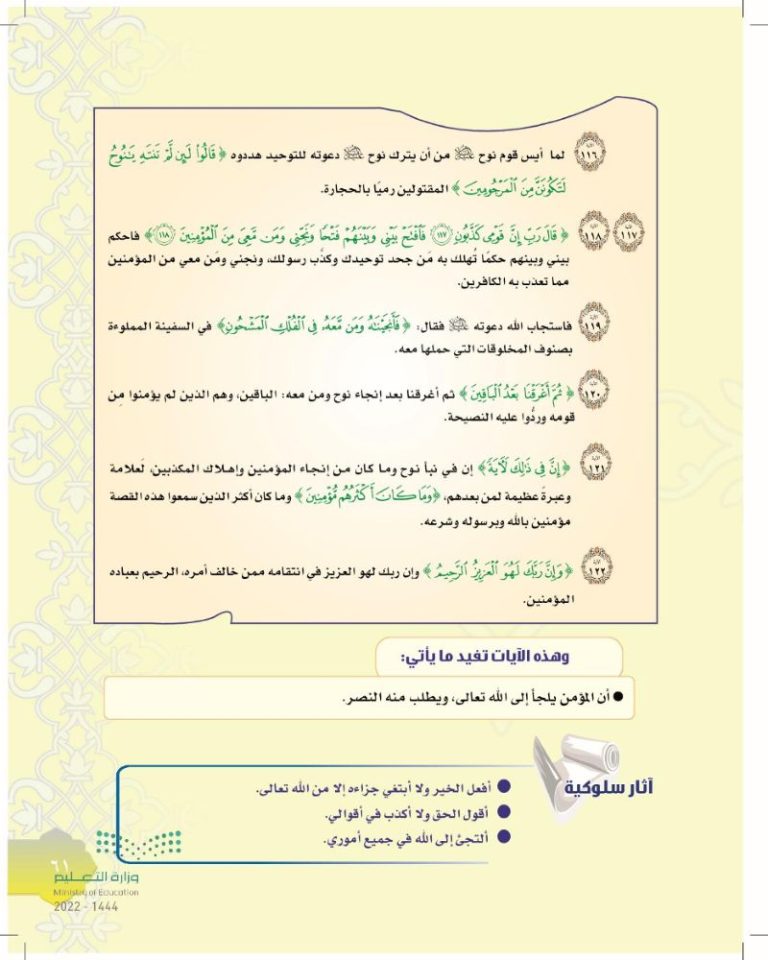 ١١٦ لما أيس قوم نوح ﷺ من أن يترك نوح ﷺ دعوته للتوحيد هددوه ﴿ قَالُوا۟ لَئِن لَّمْ تَنتَهِ يَٰنُوحُ
لَتَكُونَنَّ مِنَ ٱلْمَرْجُومِينَ ﴾ المقتولين رميًا بالحجارة.
١١٧ ١١٨ ﴿ قَالَ رَبِّ إِنَّ قَوْمِى كَذَّبُونِ ١١٧ فَٱفْتَحْ بَيْنِى وَبَيْنَهُمْ فَتْحًا وَنَجِّنِى وَمَن مَّعِىَ مِنَ ٱلْمُؤْمِنِينَ ١١٨ ﴾ فاحكم
بيني وبينهم حكمًا تُهلك به مَن جحد توحيدك وكذَّب رسولك، ونجني ومَن معي من المؤمنين
مما تعذب به الكافرين.
١١٩ فاستجاب الله دعوته ﷺ فقال: ﴿ فَأَنجَيْنَٰهُ وَمَن مَّعَهُۥ فِى ٱلْفُلْكِ ٱلْمَشْحُونِ ﴾ في السفينة المملوءة
بصنوف المخلوقات التي حملها معه.
١٢٠ ﴿ ثُمَّ أَغْرَقْنَا بَعْدُ ٱلْبَاقِينَ ﴾ ثم أغرقنا بعد إنجاء نوح ومن معه: الباقين، وهم الذين لم يؤمنوا مِن
قومه وردُّوا عليه النصيحة.
١٢١ ﴿ إِنَّ فِى ذَٰلِكَ لَءَايَةً ﴾ إن في نبأ نوح وما كان من إنجاء المؤمنين وإهلاك المكذبين، لَعلامة
وعبرةً عظيمة لمن بعدهم، ﴿ وَمَا كَانَ أَكْثَرُهُم مُّؤْمِنِينَ ﴾ وما كان أكثر الذين سمعوا هذه القصة
مؤمنين بالله وبرسوله وشرعه.
١٢٢ ﴿ وَإِنَّ رَبَّكَ لَهُوَ ٱلْعَزِيزُ ٱلرَّحِيمُ ﴾ وإن ربك لهو العزيز في انتقامه ممن خالف أمره، الرحيم بعباده
المؤمنين.
وهذه الآيات تفيد ما يأتي:
● أن المؤمن يلجأ إلى الله تعالى، ويطلب منه النصر.
آثار سلوكية
● أفعل الخير ولا أبتغي جزاءه إلا من الله تعالى.
● أقول الحق ولا أكذب في أقوالي.
● ألتجئ إلى الله في جميع أموري.
٦١
وزارة التعليم
Ministry of Education
2022 - 1444